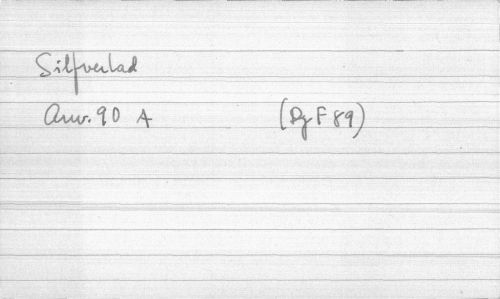 Silfverlad
Anv. 90 A (Dg F 89)